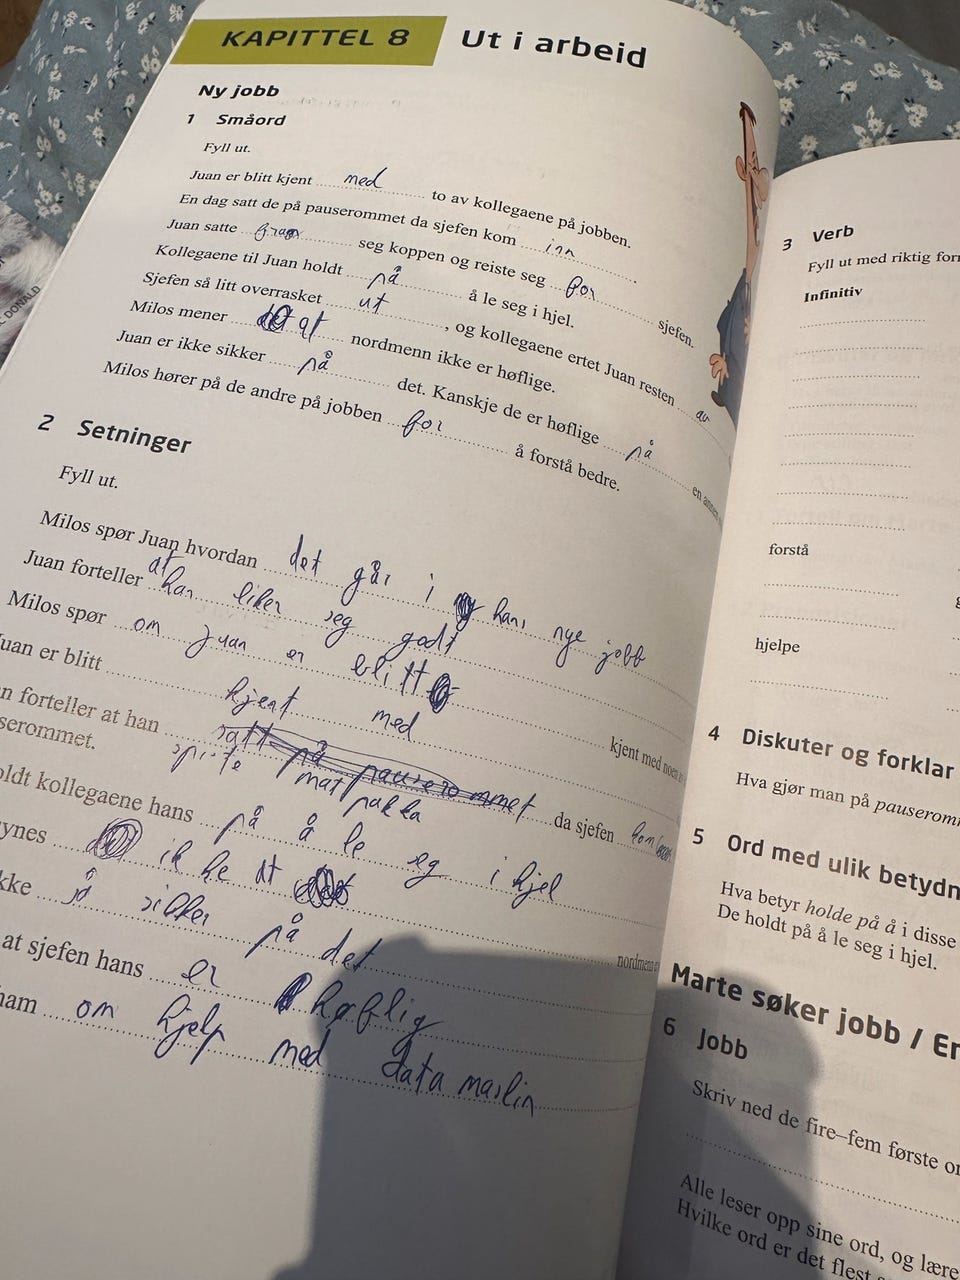 KAPITTEL 8 Ut i arbeid
Ny jobb
1 Småord
Fyll ut.
Juan er blitt kjent med to av kollegaene på jobben.
En dag satt de på pauserommet da sjefen kom inn.
Juan satte fram seg koppen og reiste seg for sjefen.
Kollegaene til Juan holdt på å le seg i hjel.
Sjefen så litt overrasket ut, og kollegaene ertet Juan resten av
Milos mener at nordmenn ikke er høflige.
Juan er ikke sikker på det. Kanskje de er høflige på en annen
Milos hører på de andre på jobben for å forstå bedre.
2 Setninger
Fyll ut.
Milos spør Juan hvordan det går i hans nye jobb
Juan forteller at han liker seg godt
Milos spør om Juan er blitt
Juan er blitt kjent med kjent med noen
n forteller at han spiste matpakka da sjefen kom
serommet.
oldt kollegaene hans på å le seg i hjel
ynes ikke at nordmenn
kke så sikker på det
at sjefen hans er høflig
ham om hjelp med data maslin
3 Verb
Fyll ut med riktig for
Infinitiv
forstå
hjelpe
4 Diskuter og forklar
Hva gjør man på pauserom
5 Ord med ulik betydn
Hva betyr holde på å i disse
De holdt på å le seg i hjel.
Marte søker jobb / En
6 Jobb
Skriv ned de fire–fem første or
Alle leser opp sine ord, og lære
Hvilke ord er det flest
DONALD